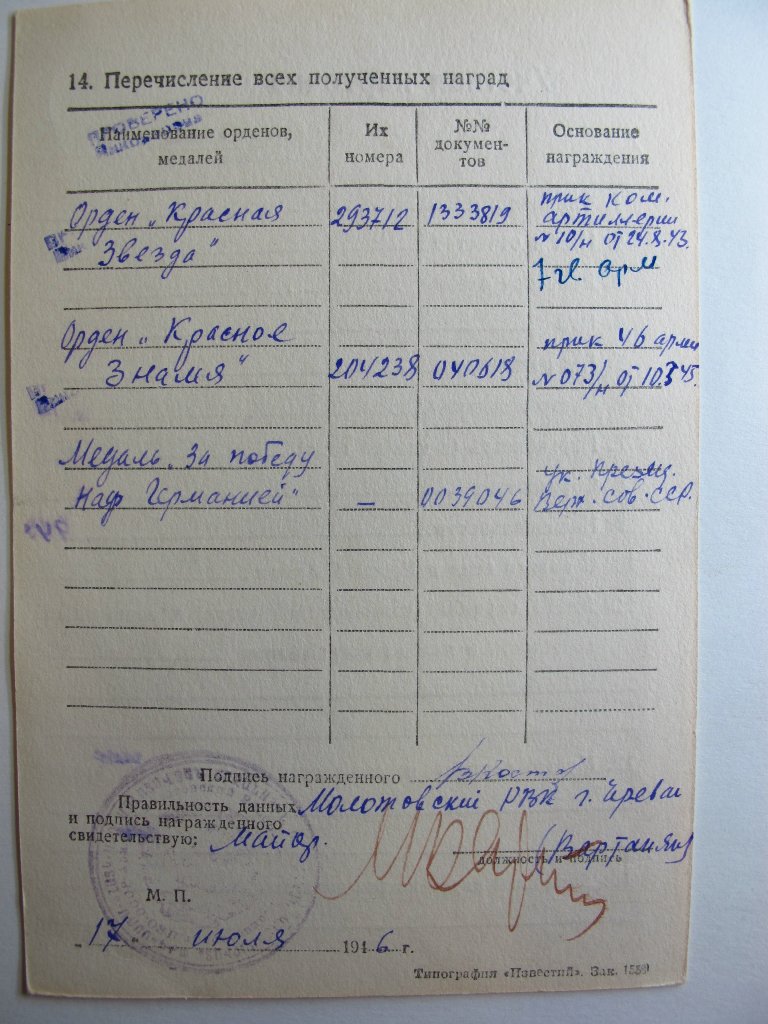 14. Перечисление всех полученных наград
ПРОВЕРЕНО
Наименование орденов, медалей
Их номера
№№ документов
Основание награждения
Орден „Красная
Звезда"
293712
1333819
прик ком.
артиллерии
№ 10/н от 24.8.43.
7 гв. арм
Орден „Красное
Знамя"
204238
040618
прик 46 арми
№ 073/н от 10.3.45.
Медаль „За победу
над Германией"
—
0039046
Ук. През.
Верх. Сов. ССР.
Подпись награжденного
Правильность данных
и подпись награжденного
свидетельствую:
Молотовский РВК г. Ереван
Майор.
(Вартанян)
должность и подпись
М. П.
„17" июля 1946 г.
Типография «Известий». Зак. 1550